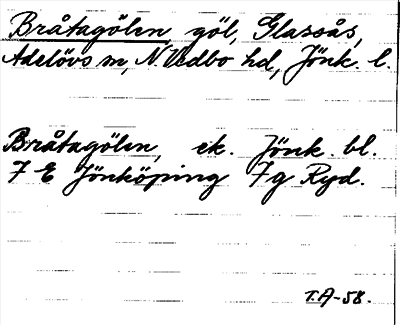 Bråtagölen, göl, Glassås,
Adelövs sn, N. Vedbo hd, Jönk. l.
Bråtagölen, ek. Jönk. bl.
7 E Jönköping 7g Ryd.
T.A-58.